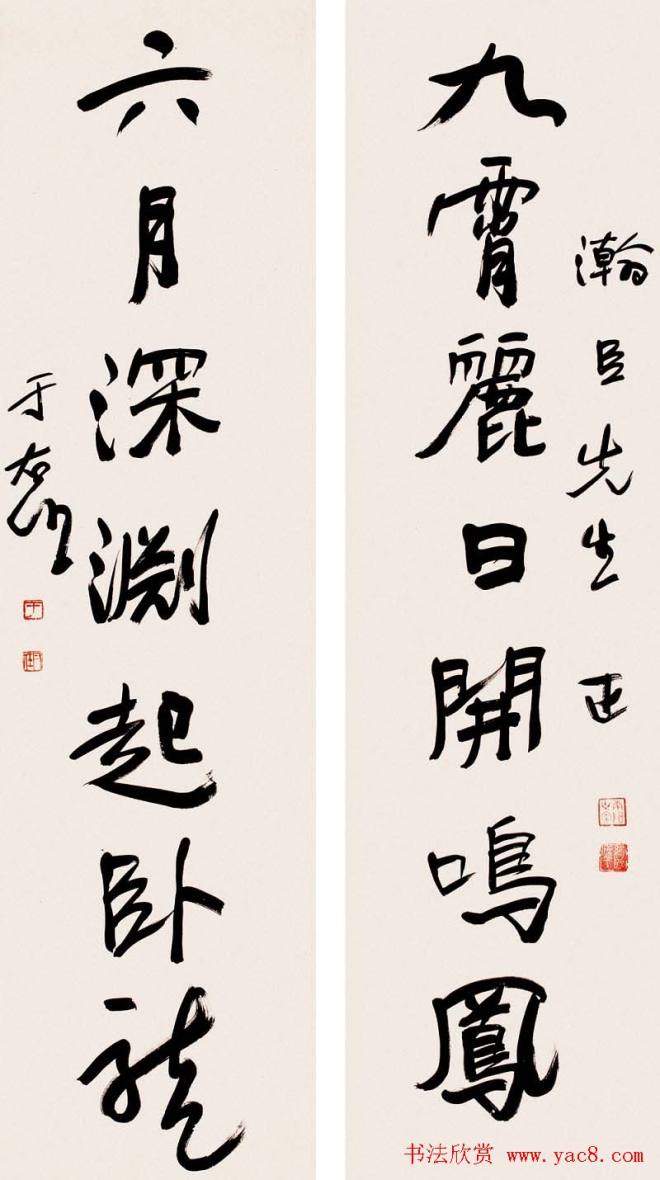 瀚臣先生正
九霄麗日開鳴鳳
六月深淵起臥龍
于右任
书法欣赏 www.yac8.com